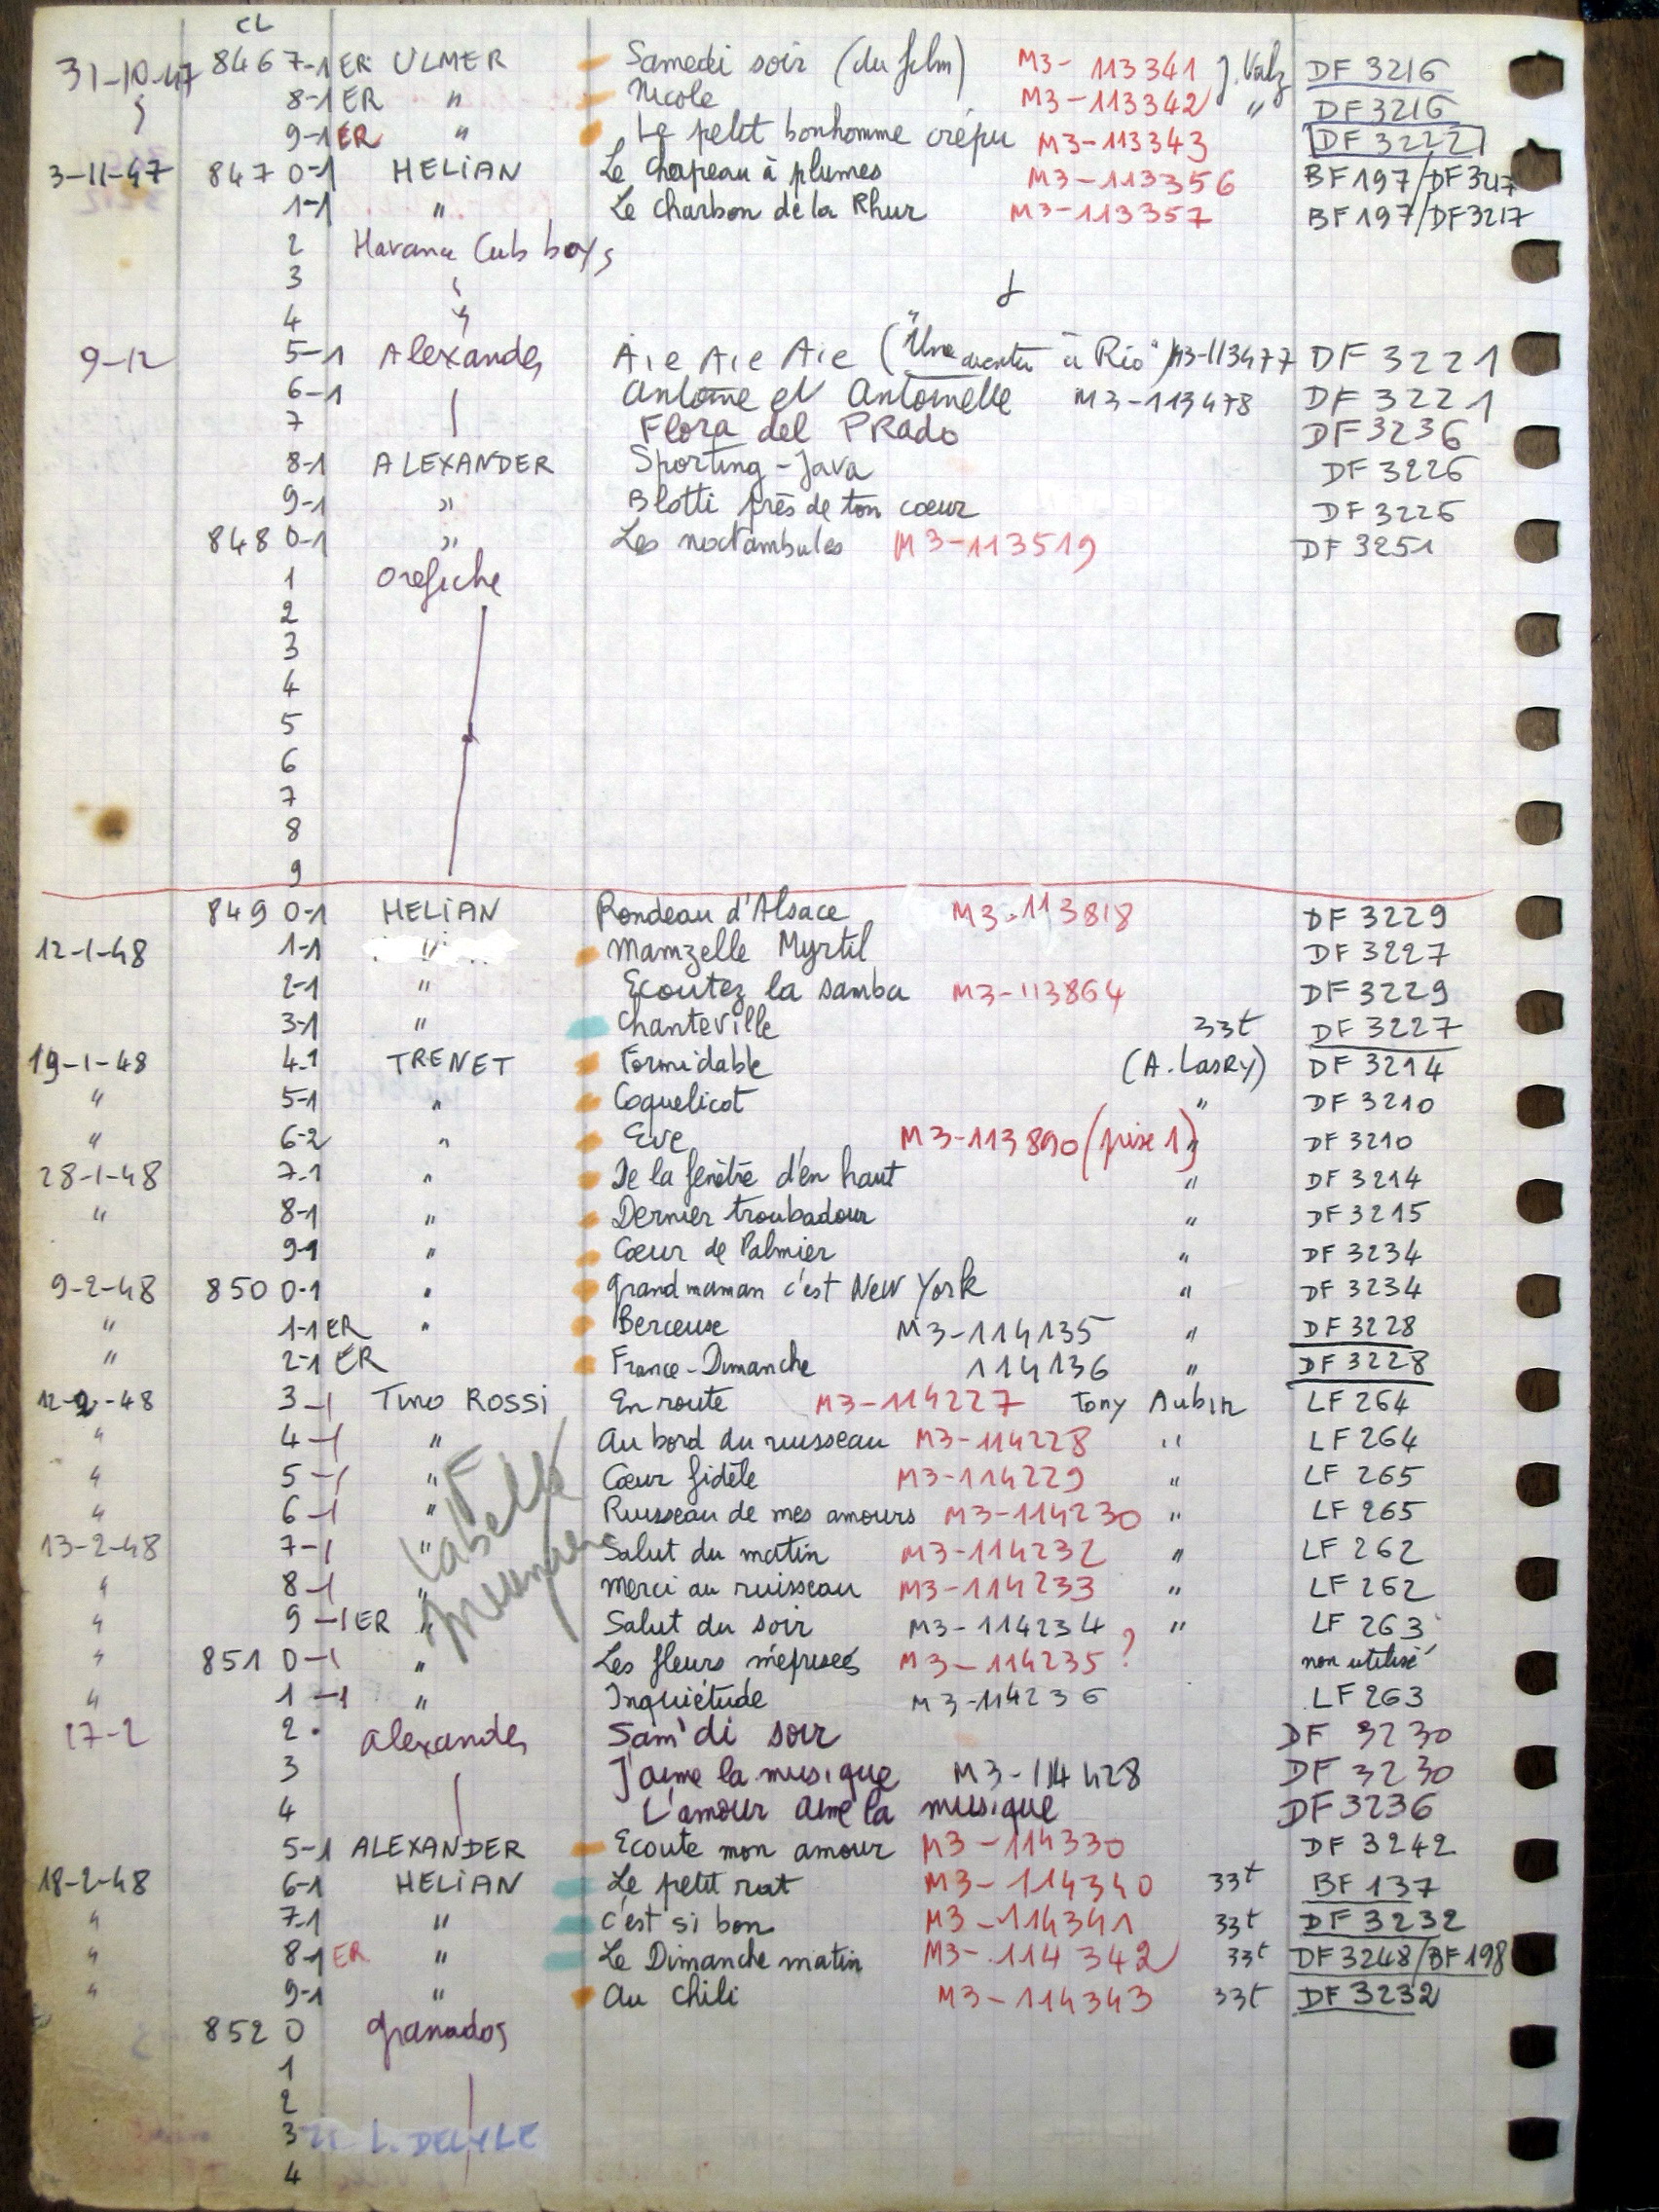 CL
31-10-47 846 7-1 ER ULMER Samedi soir (du film) M3-113341 J. Valz DF 3216
8-1 ER " Nicole M3-113342 " DF 3216
9-1 ER " Le petit bonhomme crépu M3-113343 DF 3222
3-11-47 847 0-1 HELIAN Le chapeau à plumes M3-113356 BF 197/DF 3217
1-1 " Le charbon de la Rhur M3-113357 BF 197/DF 3217
2 Havana Cub boys
3
4
9-12 5-1 Alexander Aïe Aïe Aïe ("Une aventure à Rio") M3-113477 DF 3221
6-1 Antoine et Antoinette M3-113478 DF 3221
7 Flora del PRado DF 3236
8-1 ALEXANDER Sporting-Java DF 3226
9-1 " Blotti près de ton cœur DF 3226
848 0-1 " Les noctambules M3-113519 DF 3251
1 Orefiche
2
3
4
5
6
7
8
9
849 0-1 HELIAN Rondeau d'Alsace M3-113818 DF 3229
12-1-48 1-1 " Mamzelle Myrtil DF 3227
2-1 " Ecoutez la samba M3-113864 DF 3229
3-1 " Chanteville 33t DF 3227
19-1-48 4-1 TRENET Formidable (A. LasRY) DF 3214
" 5-1 " Coquelicot " DF 3210
" 6-2 " Eve M3-113890 (prise 1) " DF 3210
28-1-48 7-1 " De la fenêtre d'en haut " DF 3214
" 8-1 " Dernier troubadour " DF 3215
9-1 " Cœur de Palmier " DF 3234
9-2-48 850 0-1 " Grand maman c'est New York " DF 3234
" 1-1 ER " Berceuse M3-114135 " DF 3228
" 2-1 ER France-Dimanche 114136 " DF 3228
12-2-48 3-1 Tino ROSSI En route M3-114227 Tony Aubin LF 264
" 4-1 " Au bord du ruisseau M3-114228 " LF 264
" 5-1 " Cœur fidèle M3-114229 " LF 265
" 6-1 " Ruisseau de mes amours M3-114230 " LF 265
13-2-48 7-1 " Salut du matin M3-114232 " LF 262
" 8-1 " Merci au ruisseau M3-114233 " LF 262
" 9-1 ER " Salut du soir M3-114234 " LF 263
" 851 0-1 " Les fleurs méprisées M3-114235 ? non utilisé
" 1-1 " Inquiétude M3-114236 LF 263
La belle meunière
17-2 2 Alexander Sam'di soir DF 3230
3 J'aime la musique M3-114428 DF 3230
4 L'amour aime la musique DF 3236
5-1 ALEXANDER Ecoute mon amour M3-114330 DF 3242
18-2-48 6-1 HELIAN Le petit rat M3-114340 33t BF 137
" 7-1 " C'est si bon M3-114341 33t DF 3232
" 8-1 ER " Le Dimanche matin M3-114342 33t DF 3248/BF 198
" 9-1 " Au Chili M3-114343 33t DF 3232
852 0 Granados
1
2
3 L. DELYLE
4